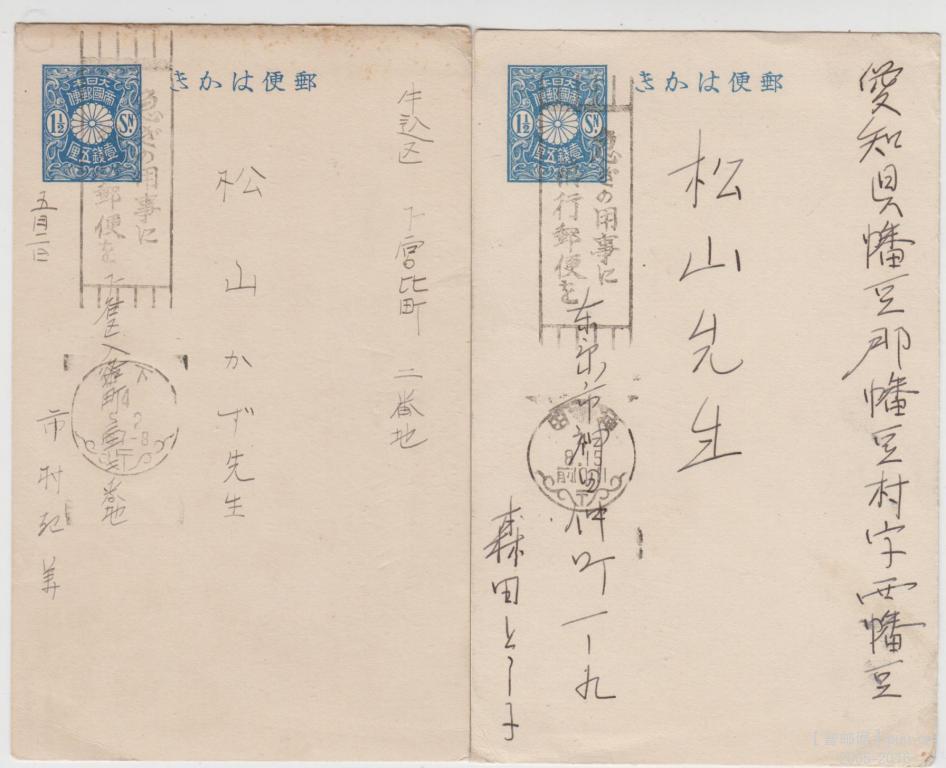 郵便はかき
大日本
帝國郵便
1½ Sn.
壹錢五厘
牛込区 下宮比町 二番地
松山かず先生
急ぎの用事に
郵便を
五月二日
市村
郵便はかき
大日本
帝國郵便
1½ Sn.
壹錢五厘
愛知県幡豆郡幡豆村字西幡豆
松山先生
急ぎの用事に
飛行郵便を
神田
8 15
東京市神田仲町一ノ九
森田とし子